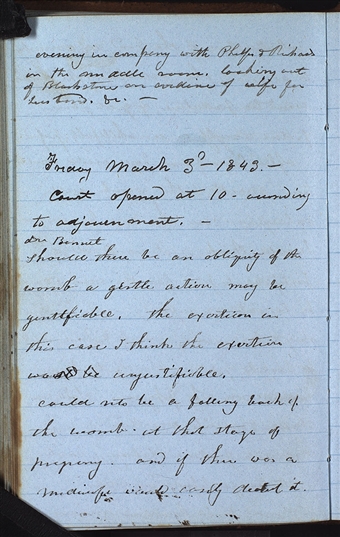 evening in company with Phelps & Richard
in the middle room, looking out
of Blackstone on evidence of wife for
husband. &c. —
Friday March 3d - 1843. -
Court opened at 10 - according
to adjournment. -
Dr. Bennet
Should there be an obliquity of the
womb a gentle action may be
justifiable. the exertion in
this case I think the exertion
unjustifiable.
could not be a falling back of
the womb at that stage of
pregnancy. and if there was a
would easily detect it.